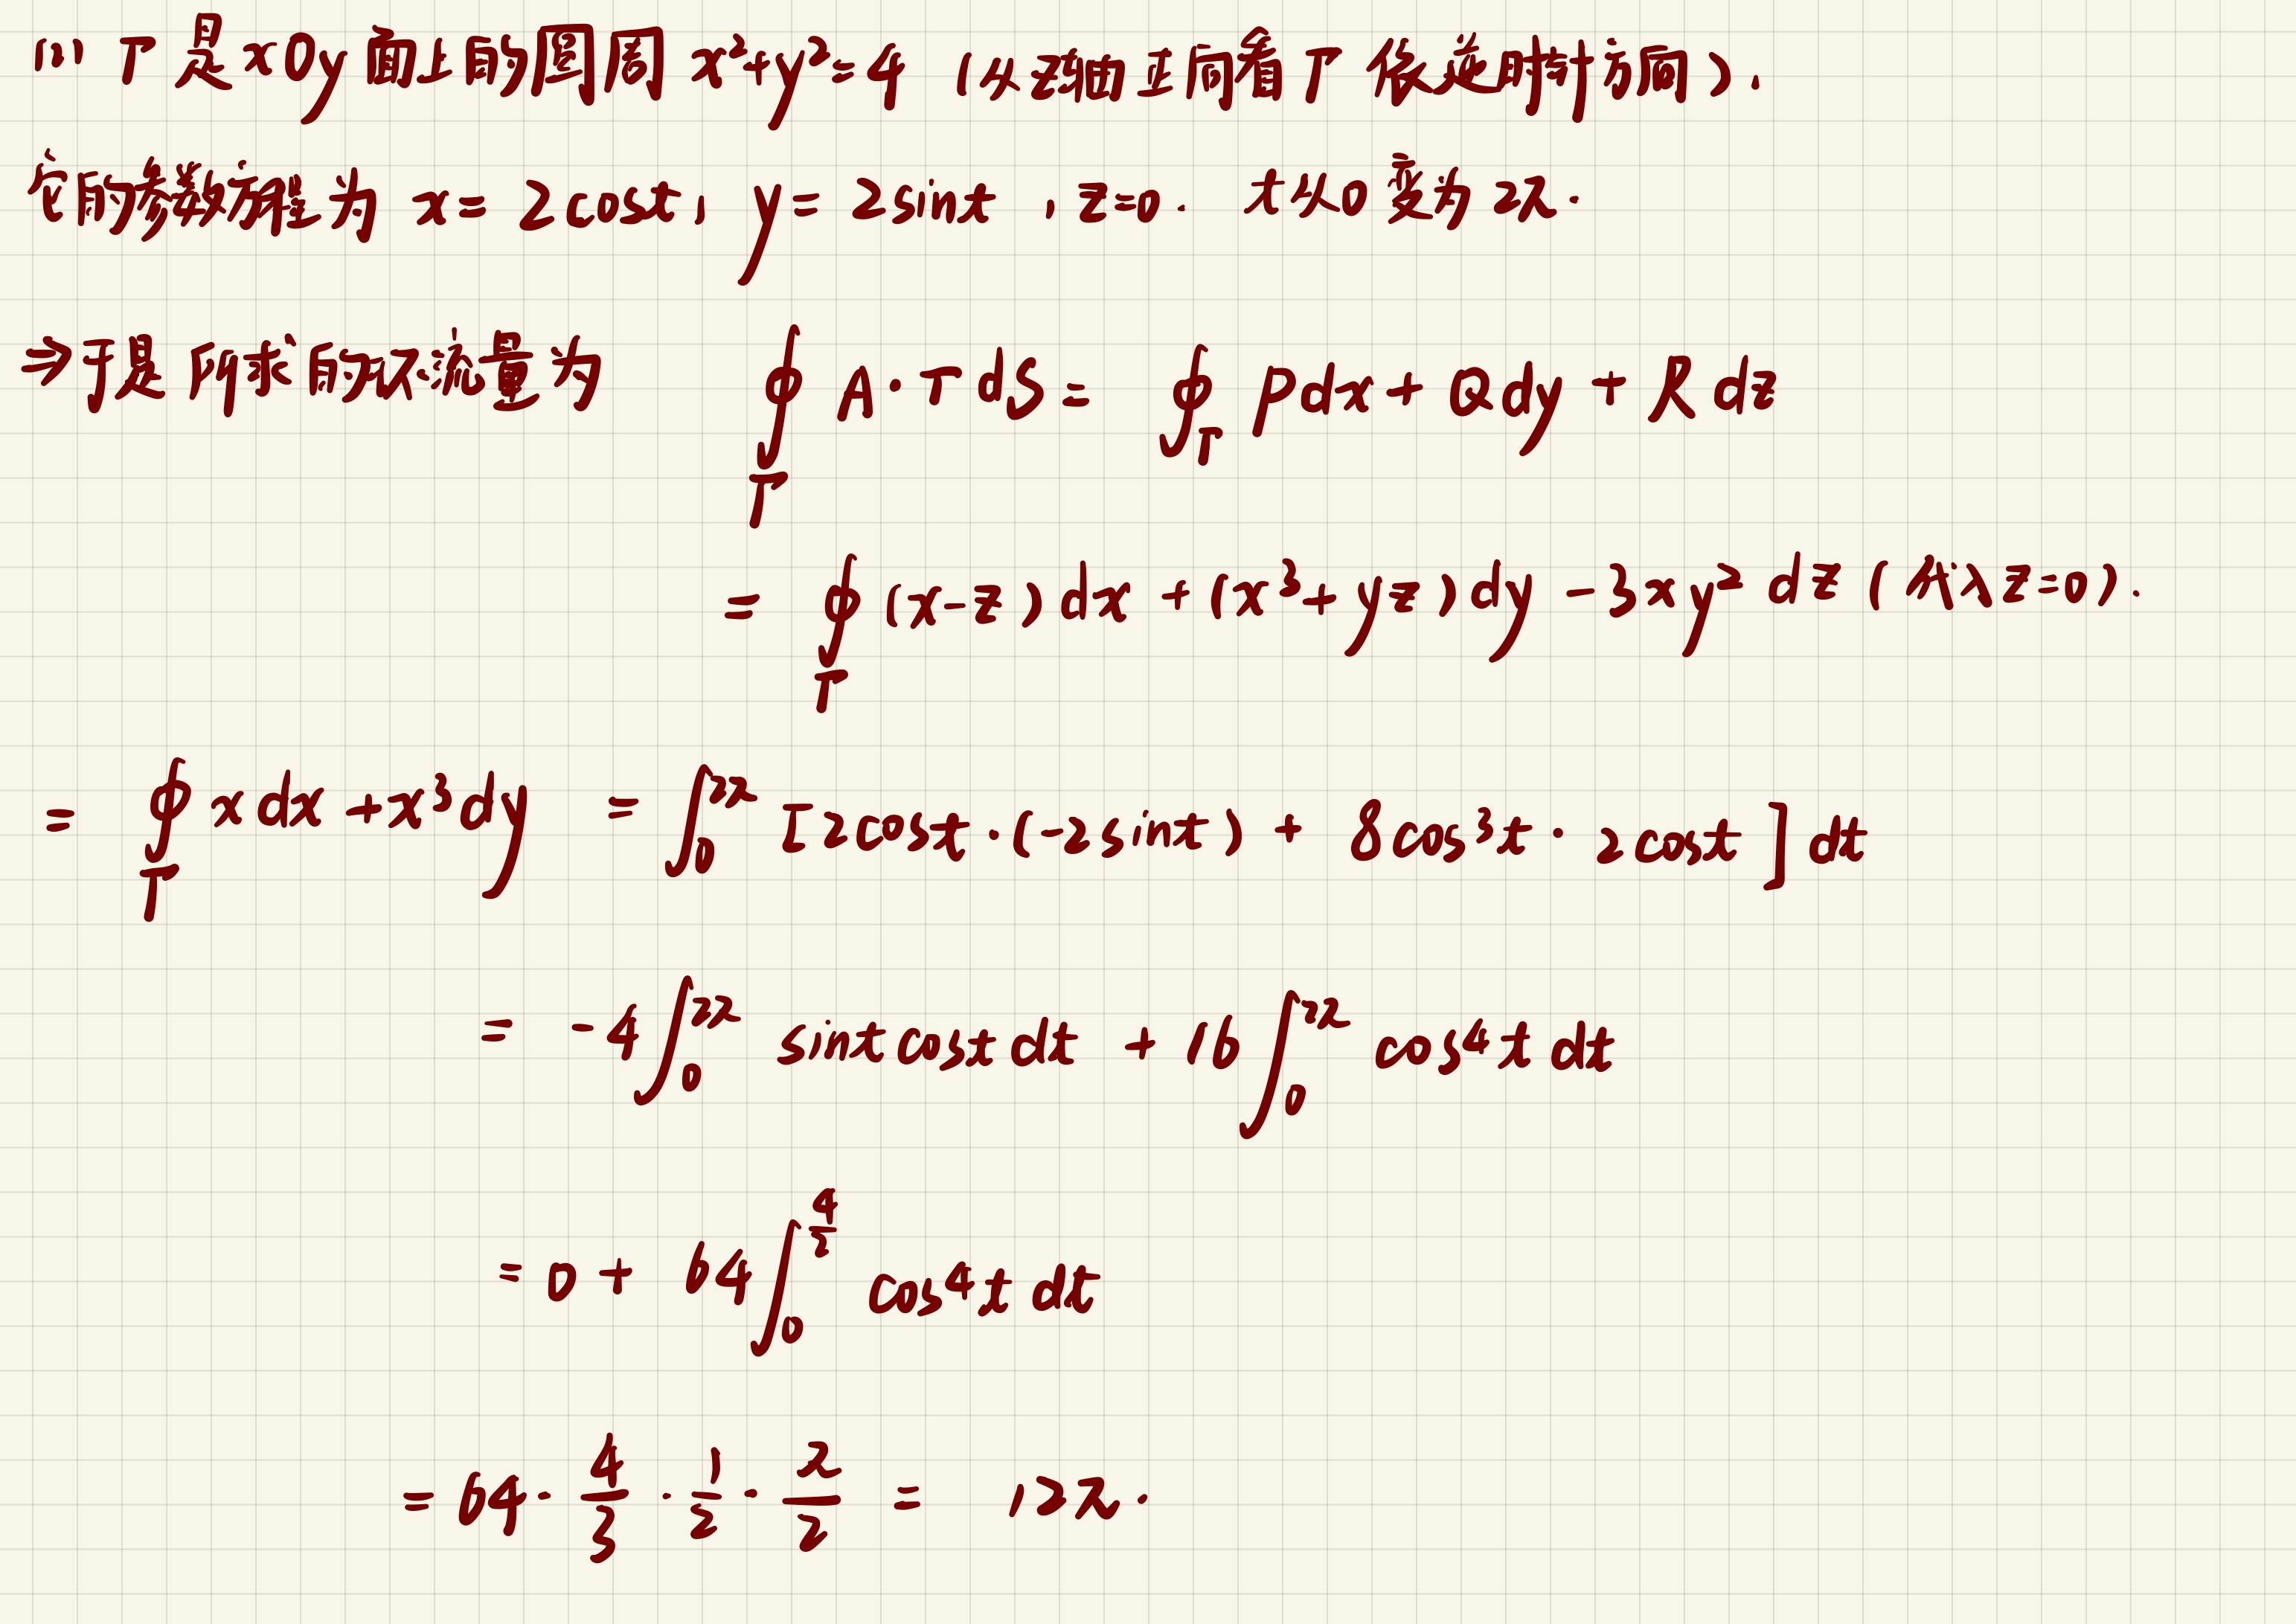 (1) Γ是xOy面上的圆周 x²+y²=4 (从z轴正向看Γ依逆时针方向).
它的参数方程为 x=2cost, y=2sint, z=0. t从0变为2π.
⇒于是所求的环流量为 ∮_Γ A·T dS = ∮_Γ Pdx+Qdy+Rdz
= ∮_Γ (x-z)dx+(x³+yz)dy-3xy²dz (代入z=0).
= ∮_Γ xdx+x³dy = ∫₀^{2π} [2cost·(-2sint)+8cos³t·2cost]dt
= -4∫₀^{2π} sintcostdt + 16∫₀^{2π} cos⁴t dt
= 0+64∫₀^{4/2} cos⁴t dt
= 64·4/3·1/2·π/2 = 12π.